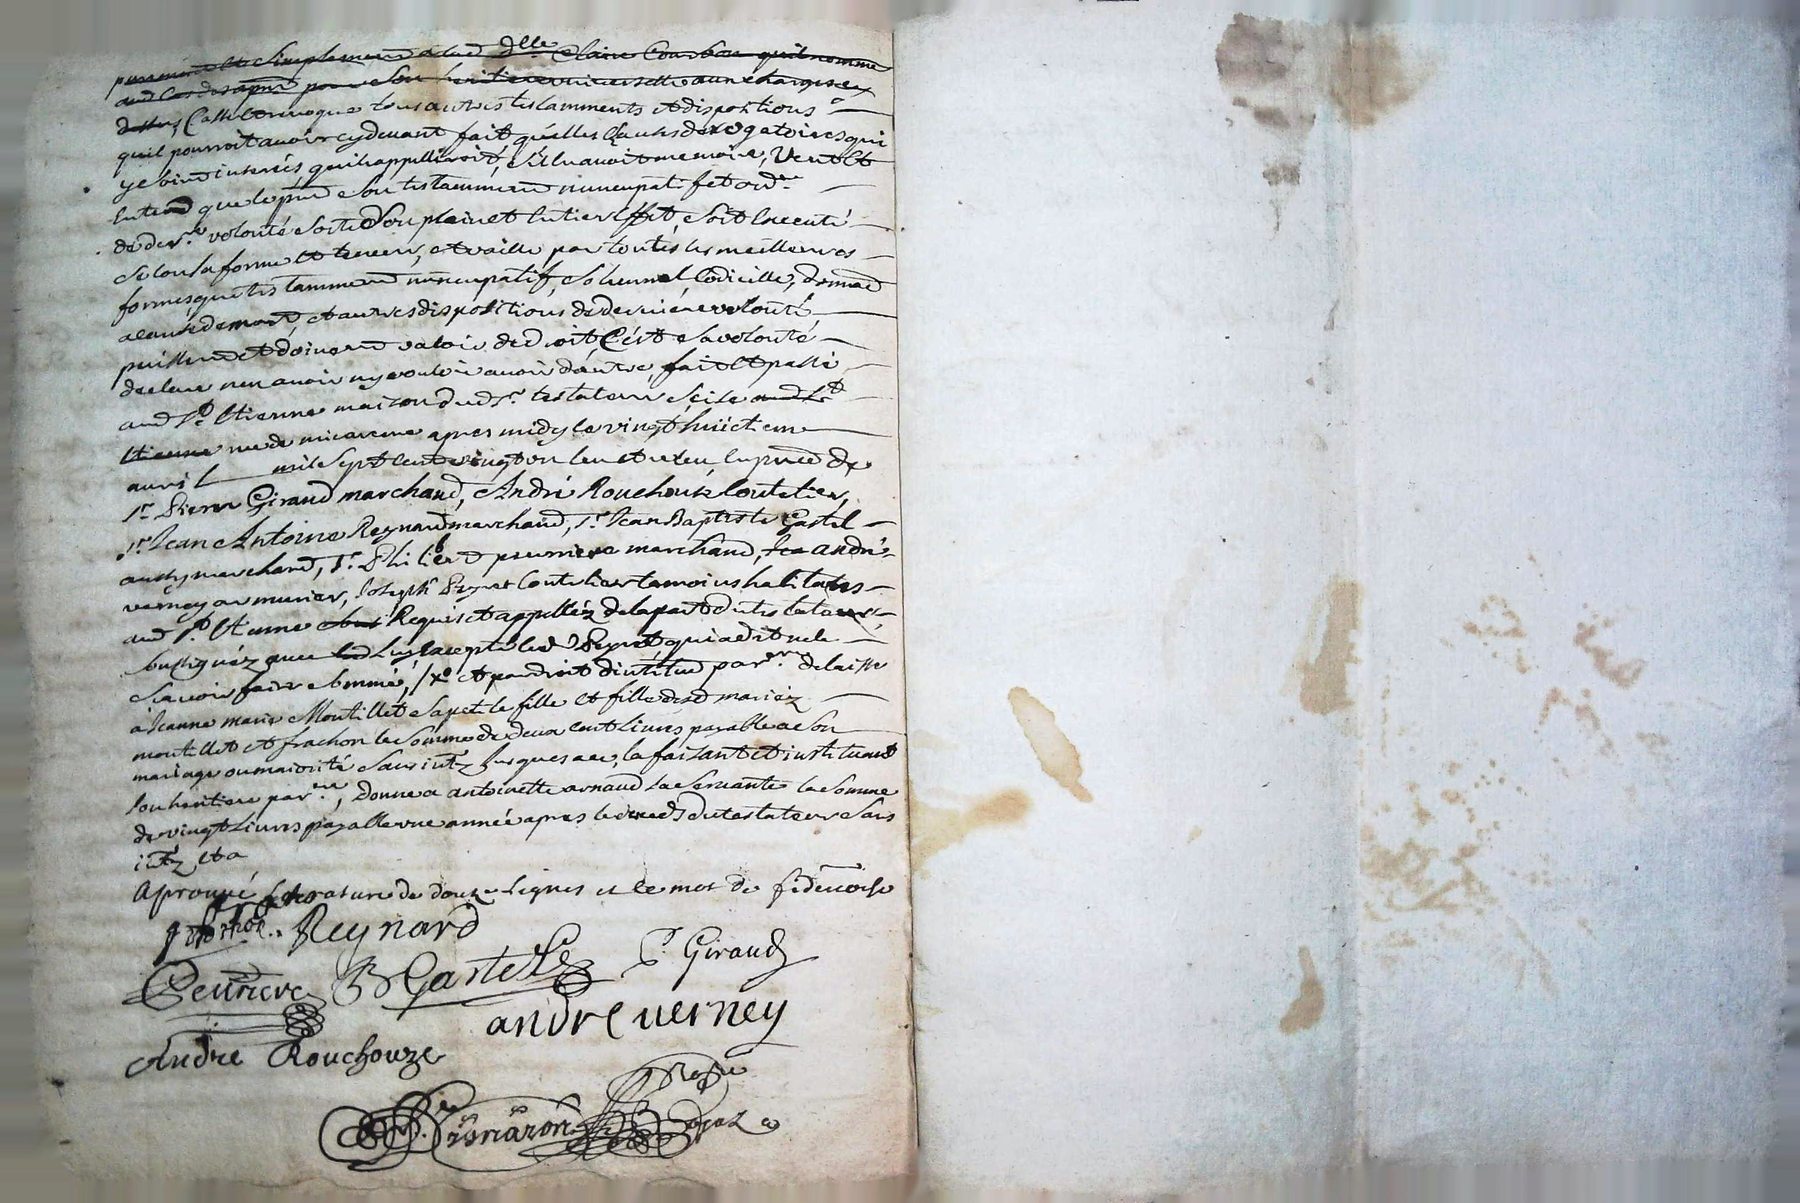 purement et simplement a lad. dlle. Claire Courbon quil nomme
aud cas des apnt pour son heritiere universelle aux charges cy
dessus, Casse et revoque tous autres testamments et dispositions
quil pourroit avoir cy devant fait quelles clauses derogatoires qui
y soient inserées quil rappelleroit, s'il en avoit memoire, Veut et
Entend que le pnt son testamment nuncupatif et ordre.
de derre. volonté sorte son plain et Entier effet, soit executé
selon sa forme et teneur, et vaille par toutes les meilleures
formes que testamment nuncupatif, solennel, Codicille, donnaon
a cause de mort, et autres dispositions de derniere volonté,
puissent et doivent valoir de droit, C'ést sa volonté
declare nen avoir ny vouloir avoir d'autre, fait et passé
aud St. Etienne maison dud sr. testateur scise aud St
Etienne rue de micareme apres midy le vingt huictieme
avril mil sept cent vingt en la pnce de
sr. Pierre Giraud marchand, André Rouchouze Coutelier,
sr. Jean Antoine Reynard marchand, sr. Jean Baptiste Gastel
aussy marchand, sr. Philibert peurriere marchand, andré
verney armurier, Joseph Peyret Coutelier temoins habitans
aud St. Etienne Requis et appellés de la part du testateur,
soussignéz avec Luy excepté led Peyret qui a dit ne le
scavoir faire sommé, /xo et par droit d'institue parre. delaisse
à Jeanne marie Montillet sa petite fille et fille desd mariéz
montillet et frachon la somme de deux cent Livres payable a son
mariage ou majorité sans intz jusques a ce, la faizant et instituant
son heritiere parre., Donne a antoinette arnaud sa servante la somme
de vingt Livres payable une année apres le deceds du testateur sans
intz et a
Aprouvé la rature de douze Lignes et le mot de
Reynard
Peurriere B Gastel P. Giraud
andre verney
Andre Rouchouze